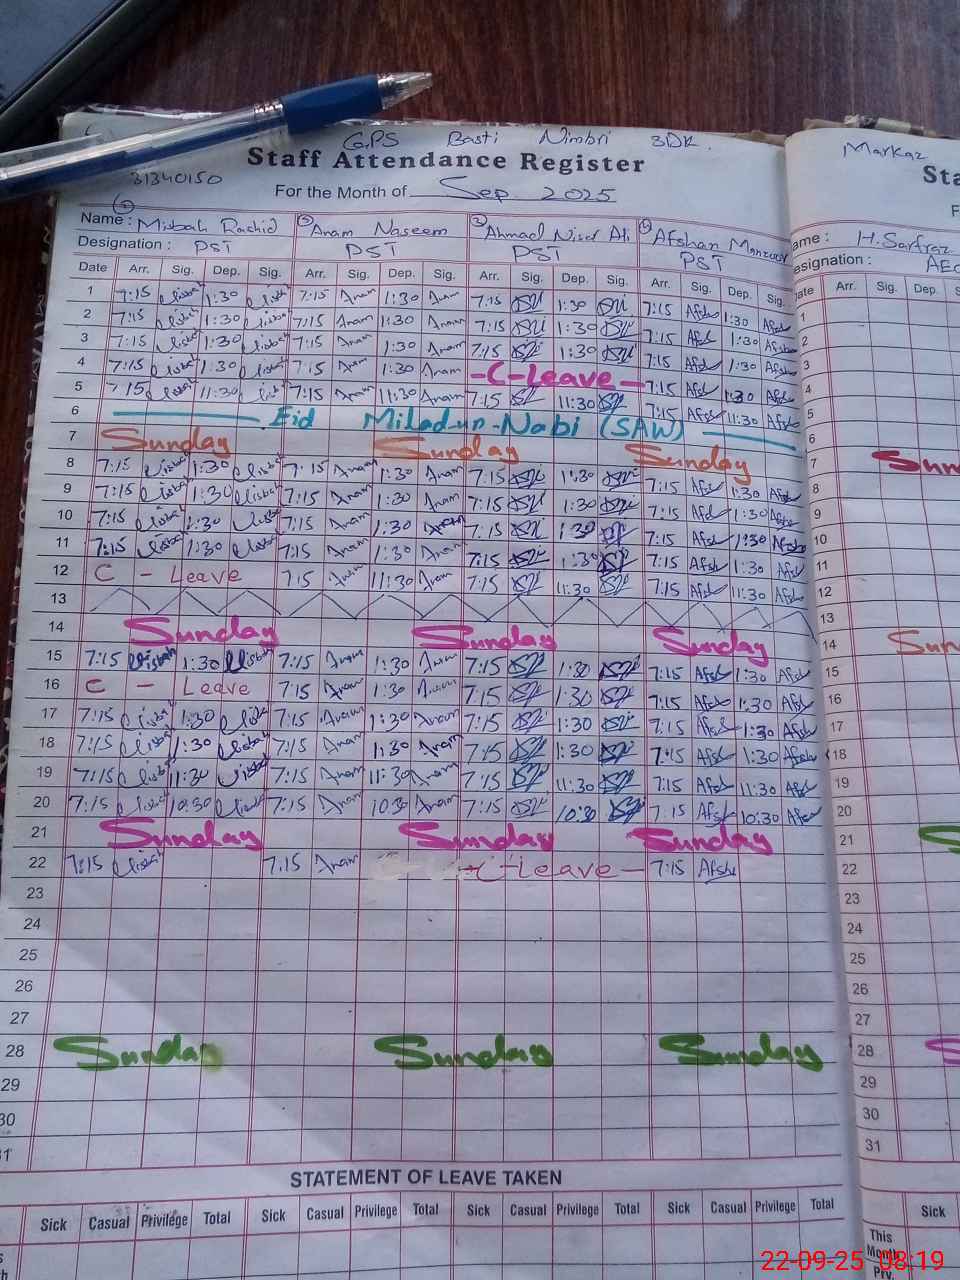 GPS Basti Nimbri 3DK.
Staff Attendance Register
31340150
For the Month of Sep 2025
① Name: Misbah Rashid ② Anam Naseem ③ Ahmad Nisar Ali ④ Afshan Manzoor
Designation: PST PST PST PST
Date Arr. Sig. Dep. Sig. Arr. Sig. Dep. Sig. Arr. Sig. Dep. Sig. Arr. Sig. Dep. Sig.
1 7:15 Misbah 1:30 Misbah 7:15 Anam 1:30 Anam 7:15 1:30 7:15 Afsh 1:30 Afsh
2 7:15 Misbah 1:30 Misbah 7:15 Anam 1:30 Anam 7:15 1:30 7:15 Afsh 1:30 Afsh
3 7:15 Misbah 1:30 Misbah 7:15 Anam 1:30 Anam 7:15 1:30 7:15 Afsh 1:30 Afsh
4 7:15 Misbah 1:30 Misbah 7:15 Anam 1:30 Anam -C-Leave- 7:15 Afsh 1:30 Afsh
5 7:15 Misbah 11:30 Misbah 7:15 Anam 11:30 Anam 7:15 11:30 7:15 Afsh 11:30 Afsh
6 Eid Milad-un-Nabi (SAW)
7 Sunday Sunday Sunday
8 7:15 Misbah 1:30 Misbah 7:15 Anam 1:30 Anam 7:15 1:30 7:15 Afsh 1:30 Afsh
9 7:15 Misbah 1:30 Misbah 7:15 Anam 1:30 Anam 7:15 1:30 7:15 Afsh 1:30 Afsh
10 7:15 Misbah 1:30 Misbah 7:15 Anam 1:30 Anam 7:15 1:30 7:15 Afsh 1:30 Afsh
11 7:15 Misbah 1:30 Misbah 7:15 Anam 1:30 Anam 7:15 1:30 7:15 Afsh 1:30 Afsh
12 C - Leave 7:15 Anam 11:30 Anam 7:15 11:30 7:15 Afsh 11:30 Afsh
13
14 Sunday Sunday Sunday
15 7:15 Misbah 1:30 Misbah 7:15 Anam 1:30 Anam 7:15 1:30 7:15 Afsh 1:30 Afsh
16 C - Leave 7:15 Anam 1:30 Anam 7:15 1:30 7:15 Afsh 1:30 Afsh
17 7:15 Misbah 1:30 Misbah 7:15 Anam 1:30 Anam 7:15 1:30 7:15 Afsh 1:30 Afsh
18 7:15 Misbah 1:30 Misbah 7:15 Anam 1:30 Anam 7:15 1:30 7:15 Afsh 1:30 Afsh
19 7:15 Misbah 11:30 Misbah 7:15 Anam 11:30 Anam 7:15 11:30 7:15 Afsh 11:30 Afsh
20 7:15 Misbah 10:30 Misbah 7:15 Anam 10:30 Anam 7:15 10:30 7:15 Afsh 10:30 Afsh
21 Sunday Sunday Sunday
22 7:15 Misbah 7:15 Anam -C-Leave- 7:15 Afsh
23
24
25
26
27
28 Sunday Sunday Sunday
29
30
31
STATEMENT OF LEAVE TAKEN
Sick Casual Privilege Total Sick Casual Privilege Total Sick Casual Privilege Total Sick Casual Privilege Total
Markaz
Sta
F
ame: H.Sarfraz
esignation: AEO
ate Arr. Sig. Dep. S
1
2
3
4
5
6
7 Sun
8
9
10
11
12
13
14 Sun
15
16
17
18
19
20
21
22
23
24
25
26
27
28
29
30
31
Sick
This
Month
Prv.
22-09-25 08:19